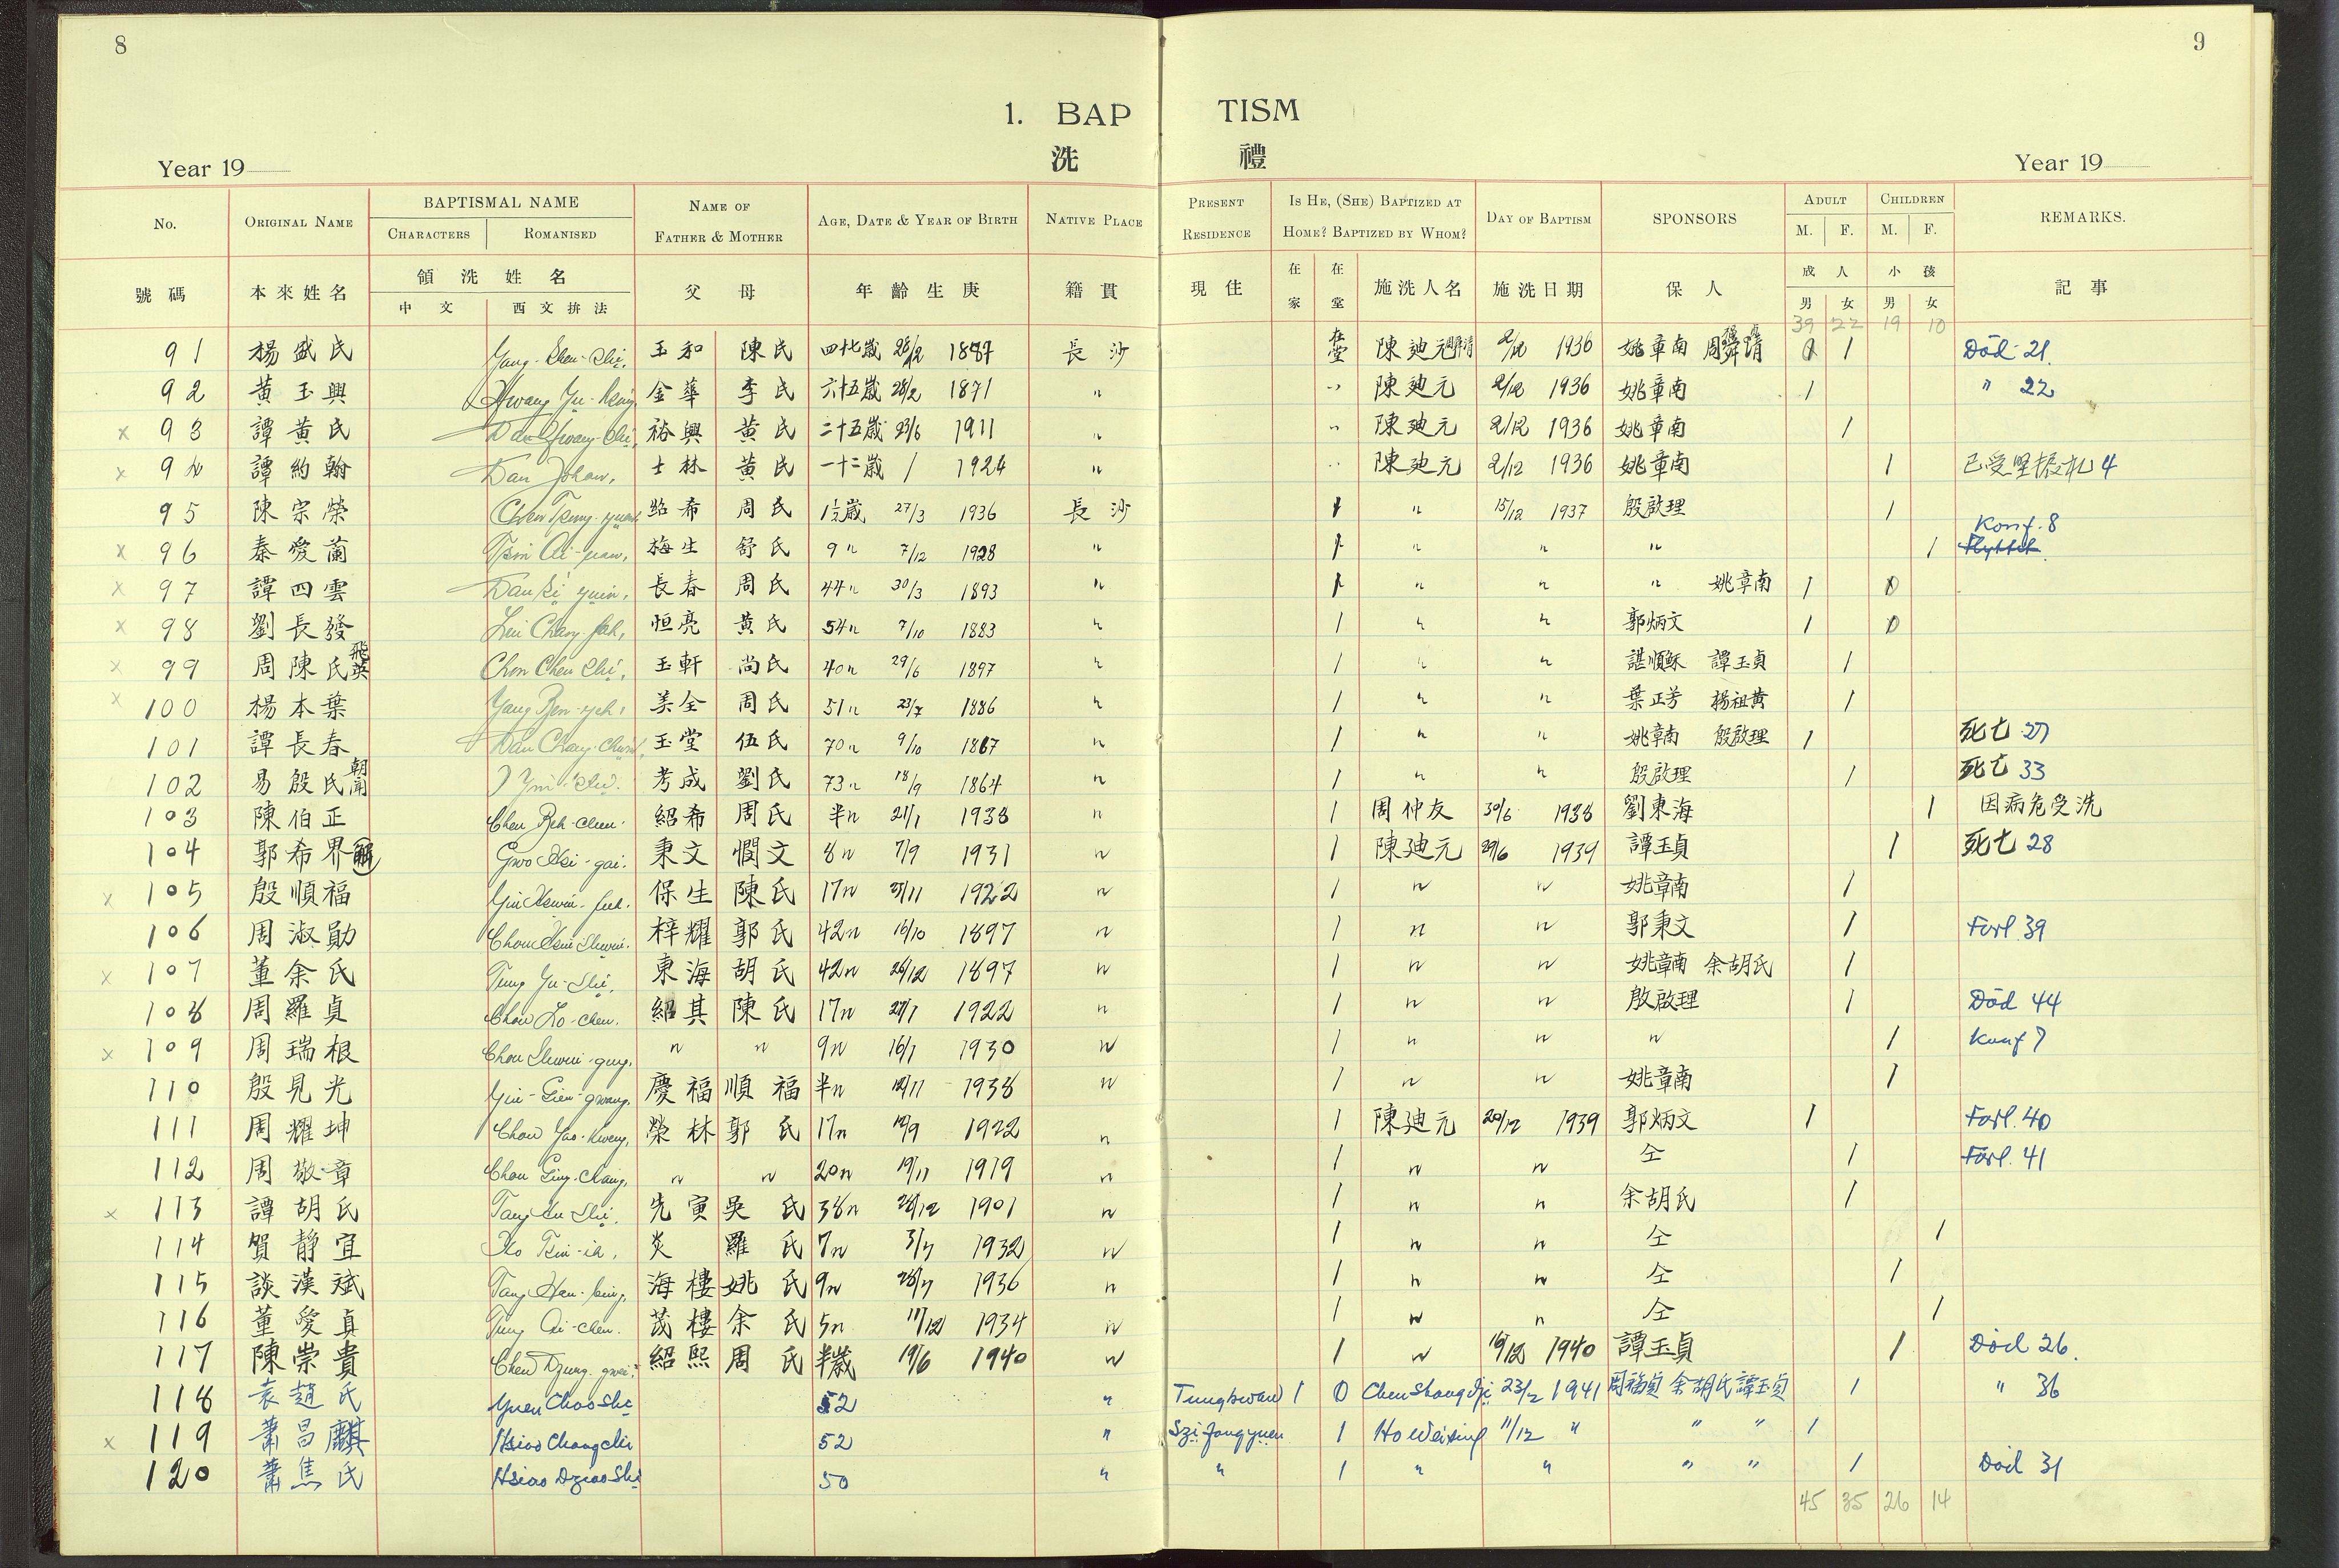 8
9
1. BAP TISM
洗 禮
Year 19
Year 19
No. ORIGINAL NAME BAPTISMAL NAME NAME OF FATHER & MOTHER AGE, DATE & YEAR OF BIRTH NATIVE PLACE PRESENT RESIDENCE IS HE, (SHE) BAPTIZED AT HOME? BAPTIZED BY WHOM? DAY OF BAPTISM SPONSORS ADULT CHILDREN REMARKS.
CHARACTERS ROMANISED M. F. M. F.
號碼 本來姓名 領洗姓名 父 母 年齡生庚 籍貫 現住 在家 在堂 施洗人名 施洗日期 保人 成人 小孩 記事
中文 西文拚法 男 女 男 女
39 22 19 10
91 楊盛氏 Yang-Shen-Shi, 玉和 陳氏 四十七歲 1887 長沙 在堂 陳廸元 2/12 1936 姚章南 1 Död 21.
92 黃玉興 Hwang Yu-hsing, 金華 李氏 六十五歲 28/2 1871 " " 陳廸元 2/12 1936 姚章南 1 " 22
x 93 譚黃氏 Dan Hwang-Shi, 裕興 黃氏 二十五歲 23/6 1911 " " 陳廸元 2/12 1936 姚章南 1
x 94 譚約翰 Dan Johan, 士林 黃氏 一十二歲 / 1924 " " 陳廸元 2/12 1936 姚章南 1 已受堅振礼 4
95 陳宗榮 紹希 周氏 1½歲 27/3 1936 長沙 1 " 15/12 1937 殷啟理 1
x 96 秦愛蘭 梅生 舒氏 9" 7/12 1928 " 1 " " " 1 Konf. 8 Flyttat
x 97 譚四雲 Dan Si yuin, 長春 周氏 44" 30/3 1893 " 1 " " " 姚章南 1 0
x 98 劉長發 恒亮 黃氏 54" 7/10 1883 " 1 " " 郭炳文 1 0
x 99 周陳氏飛英 Chou Chen Shi, 玉軒 尚氏 40" 29/6 1897 " 1 " " 諶順穌 譚玉貞 1
x 100 楊本葉 Yang Ben-yeh, 美全 周氏 51" 23/7 1886 " 1 " " 葉正芳 楊祖黃 1
101 譚長春 Dan Chang-Chuin, 玉堂 伍氏 70" 9/10 1867 " 1 " " 姚章南 殷啟理 1 死亡 27
102 易殷氏朝聞 I Yin Shi. 考成 劉氏 73" 18/9 1864 " 1 " " 殷啟理 1 死亡 33
103 陳伯正 Chen Beh-Chen. 紹希 周氏 半" 21/1 1938 " 1 周仲友 30/6 1938 劉東海 1 因病危受洗
104 郭希界(解) Gwo Hsi-gai. 秉文 憫文 8" 7/9 1931 " 1 陳廸元 29/6 1939 譚玉貞 1 死亡 28
x 105 殷順福 保生 陳氏 17" 1922 " 1 " " 姚章南 1
106 周淑勛 梓耀 郭氏 42" 16/10 1897 " 1 " " 郭秉文 1 Forl. 39
x 107 董余氏 Tung Yu-Shi, 東海 胡氏 42" 26/12 1897 " 1 " " 姚章南 余胡氏 1
108 周羅貞 Chou Lo-Chen. 紹其 陳氏 17" 1922 " 1 " " 殷啟理 1 Död 44
x 109 周瑞根 " " 9" 16/1 1930 " 1 " " " 1 Konf 7
110 殷見光 Yin-Gien-gwang, 慶福 順福 半" 1938 " 1 " " 姚章南 1
111 周耀坤 榮林 郭氏 17" 1922 " 1 陳廸元 20/12 1939 郭炳文 1 Forl. 40
112 周敬章 Chou Ging-Chang, " " 20" 19/11 1919 " 1 " " 仝 1 Förl. 41
x 113 譚胡氏 先寅 吳氏 38" 28/12 1901 " 1 " " 余胡氏 1
114 賀靜宜 炎 羅氏 7" 3/7 1932 " 1 " " 仝 1
115 談漢斌 海樓 姚氏 9" 28/7 1936 " 1 " " 仝 1
116 董愛貞 Tung Ai-Chen. 茂樓 余氏 5" 11/12 1934 " 1 " " 仝 1
117 陳崇貴 Chen Dzung-gwei, 紹熙 周氏 半歲 19/6 1940 " 1 " 1940 譚玉貞 1 Död 26.
118 袁趙氏 Yuen Chao Shi 52 " Tungkwan 1 0 23/2 1941 周福貞 余胡氏 譚玉貞 1 " 36
x 119 蕭昌麒 Hsiao Chang chi 52 " Szi fang yuen 1 Ho Wei sing 11/12 " " " 1
120 蕭焦氏 Hsiao Dziao Shi 50 " " 1 " " " " 1 Död 31
45 35 26 14